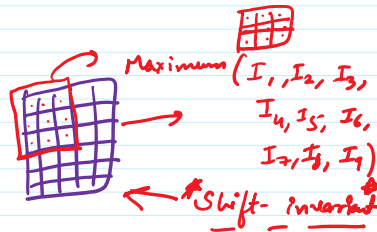 Maximum (I₁, I₂, I₃,
I₄, I₅, I₆,
I₇, I₈, I₉)
*Shift-invariant*